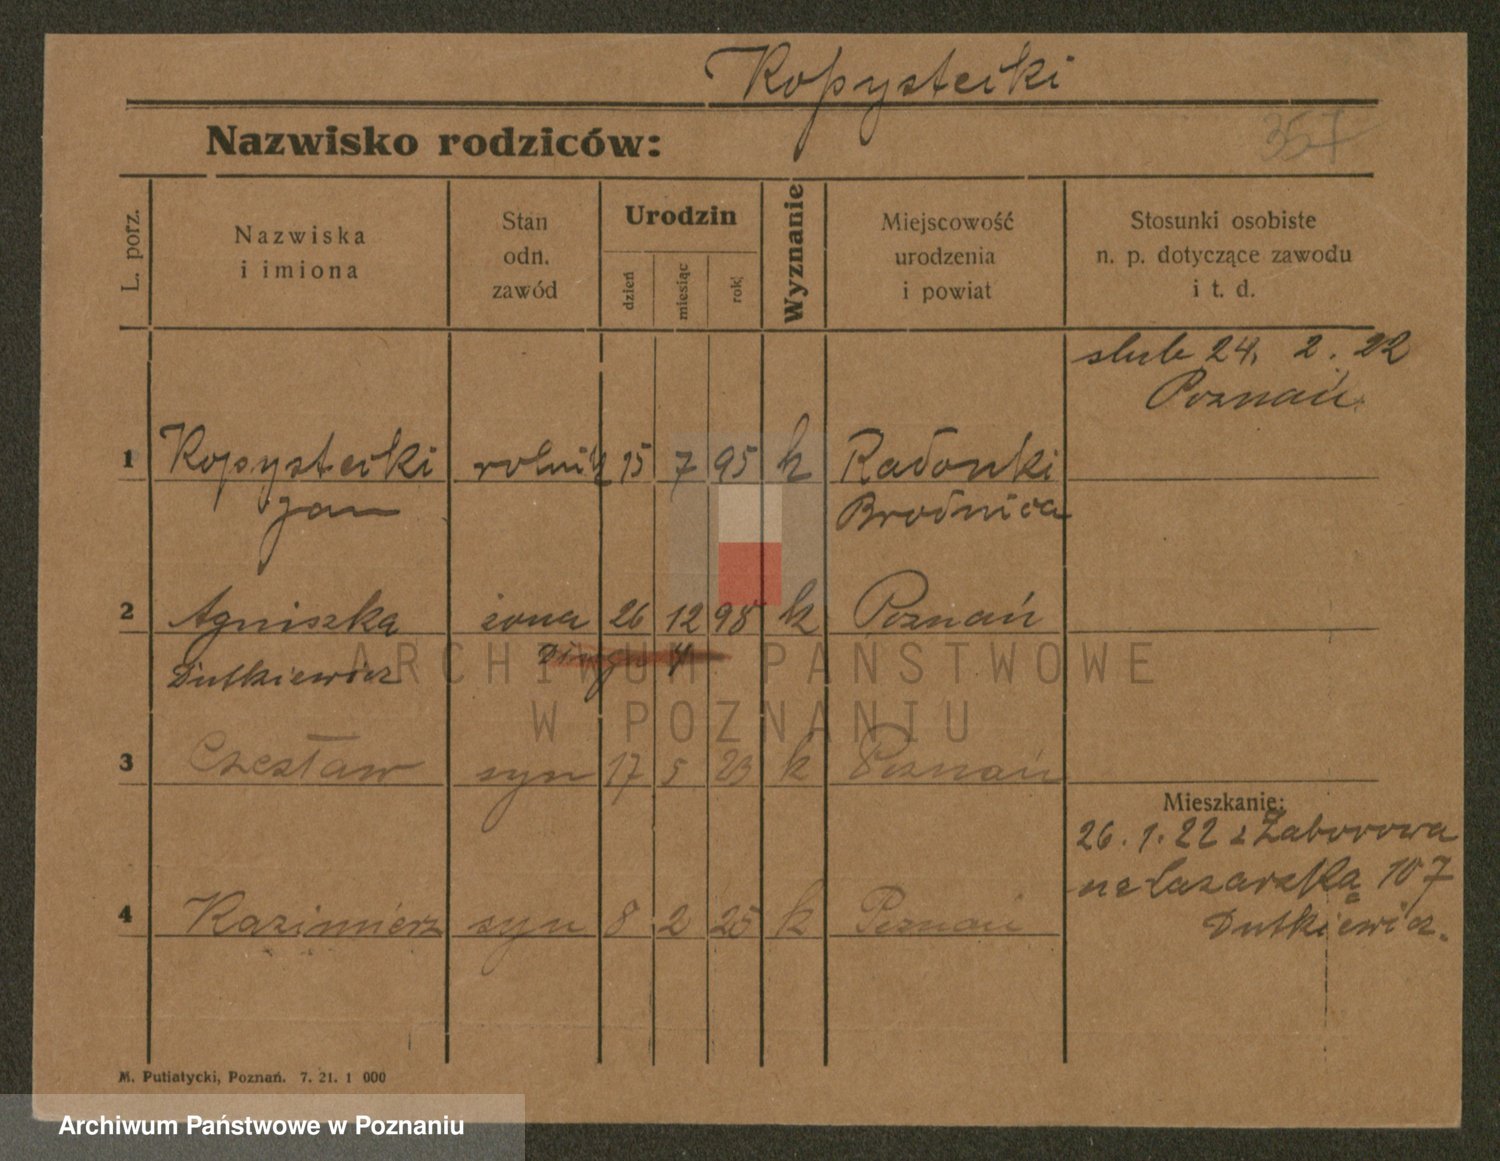 Kopystecki
Nazwisko rodziców:
357
L. porz.
Nazwiska
i imiona
Stan
odn.
zawód
Urodzin
dzień
miesiąc
rok
Wyznanie
Miejscowość
urodzenia
i powiat
Stosunki osobiste
n. p. dotyczące zawodu
i t. d.
slub 24. 2. 22
Poznań.
1 Kopystecki rolnik 15 7 95 k Radonki
Jan Brodnica
2 Agniszka żona 26 12 98 k Poznań
Dutkiewicz
ARCHIWUM PAŃSTWOWE
W POZNANIU
3 Czesław syn 17 5 23 k Poznań
Mieszkanie:
26. 1. 22 z Zaborowa
na Łazarską 107
Dutkiewicz.
4 Kazimierz syn 8 2 25 k Poznań
M. Putiatycki, Poznań. 7. 21. 1 000
Archiwum Państwowe w Poznaniu